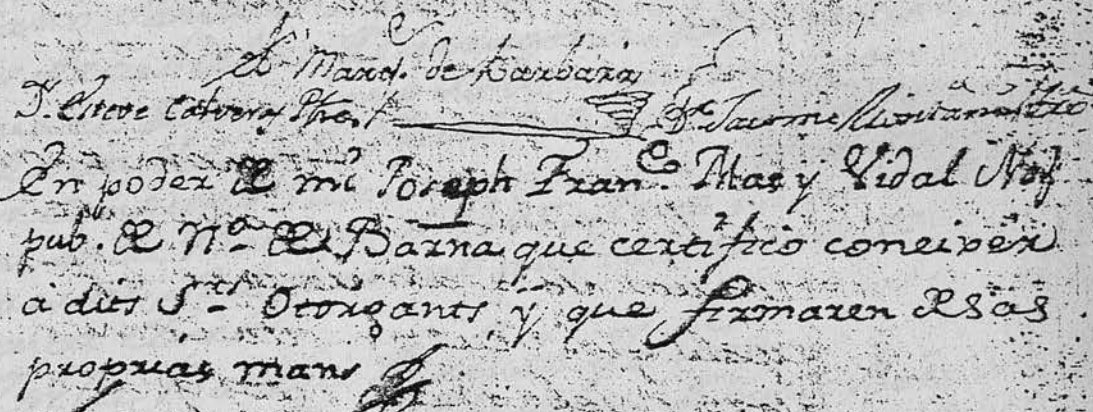 El Marq.s de Barbara
D.r Esteve Calveras Pbre.
D.r Jaume
En poder de mi Joseph Fran.co Mas y Vidal Not.
pub. de N.o de Barna que certifico coneixer
a dits S.rs Otorgants y que firmaren de sas
proprias mans